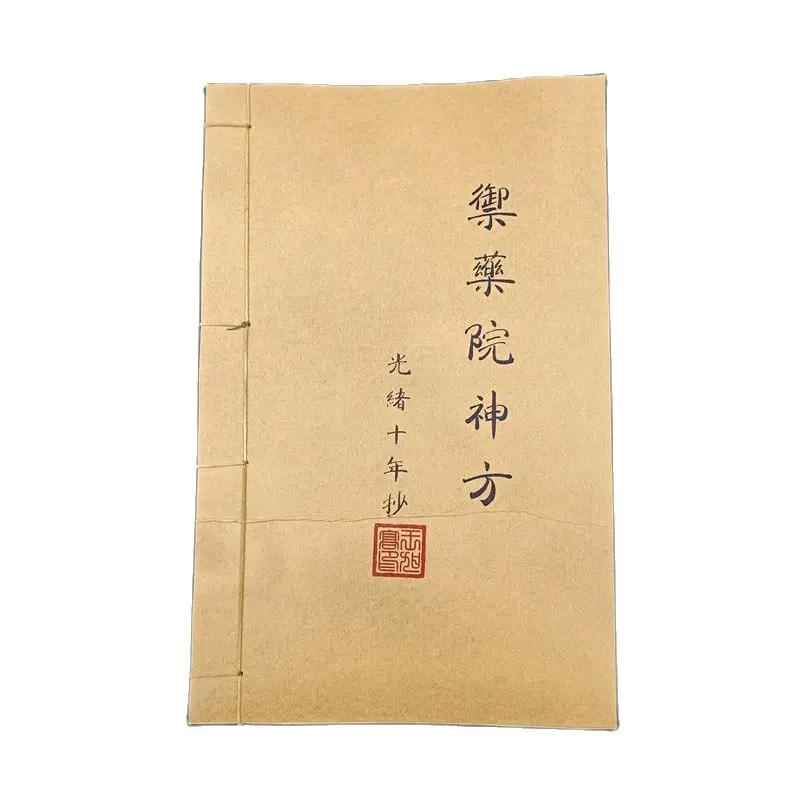 御藥院神方
光緒十年抄